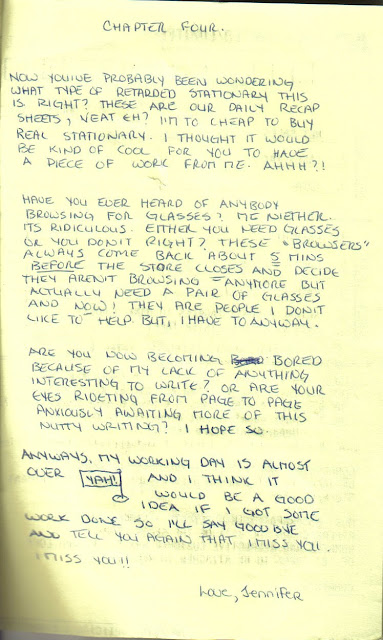 CHAPTER FOUR.
NOW YOU'VE PROBABLY BEEN WONDERING
WHAT TYPE OF RETARDED STATIONARY THIS
IS RIGHT? THESE ARE OUR DAILY RECAP
SHEETS, NEAT EH? I'M TO CHEAP TO BUY
REAL STATIONARY. I THOUGHT IT WOULD
BE KIND OF COOL FOR YOU TO HAVE
A PIECE OF WORK FROM ME. AHHH?!
HAVE YOU EVER HEARD OF ANYBODY
BROWSING FOR GLASSES? ME NIETHER.
ITS RIDICULOUS. EITHER YOU NEED GLASSES
OR YOU DON'T RIGHT? THESE "BROWSERS"
ALWAYS COME BACK ABOUT 5 MINS
BEFORE THE STORE CLOSES AND DECIDE
THEY AREN'T BROWSING ANYMORE BUT
ACTUALLY NEED A PAIR OF GLASSES
AND NOW! THEY ARE PEOPLE I DON'T
LIKE TO HELP. BUT, I HAVE TO ANYWAY.
ARE YOU NOW BECOMING BORED
BECAUSE OF MY LACK OF ANYTHING
INTERESTING TO WRITE? OR ARE YOUR
EYES RIDETING FROM PAGE TO PAGE
ANXIOUSLY AWAITING MORE OF THIS
NUTTY WRITING? I HOPE SO.
ANYWAYS, MY WORKING DAY IS ALMOST
OVER YAH! AND I THINK IT
WOULD BE A GOOD
IDEA IF I GOT SOME
WORK DONE SO I'LL SAY GOODBYE
AND TELL YOU AGAIN THAT I MISS YOU.
I MISS YOU!!
Love, Jennifer